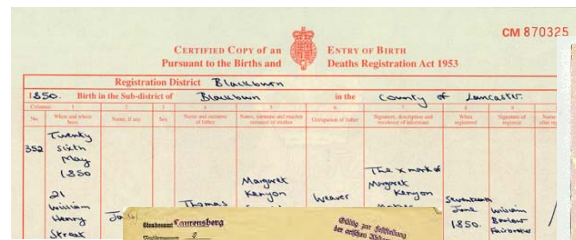 CM 870325
CERTIFIED COPY of an ENTRY OF BIRTH
Pursuant to the Births and Deaths Registration Act 1953
Registration District Blackburn
1850. Birth in the Sub-district of Blackburn in the County of Lancaster.
Columns:- 1 2 3 4 5 6 7 8 9
No. When and where born Name, if any Sex Name and surname of father Name, surname and maiden surname of mother Occupation of father Signature, description and residence of informant When registered Signature of registrar
352
Twenty
sixth
May
1850
21
William
Henry
Street
Thomas
Margaret
Kenyon
Weaver
The x mark of
Margaret
Kenyon
Mother
Seventeenth
June
1850.
William
Fairbrother
Standesamt Laurensberg
Gültig zur Feststellung
der arischen